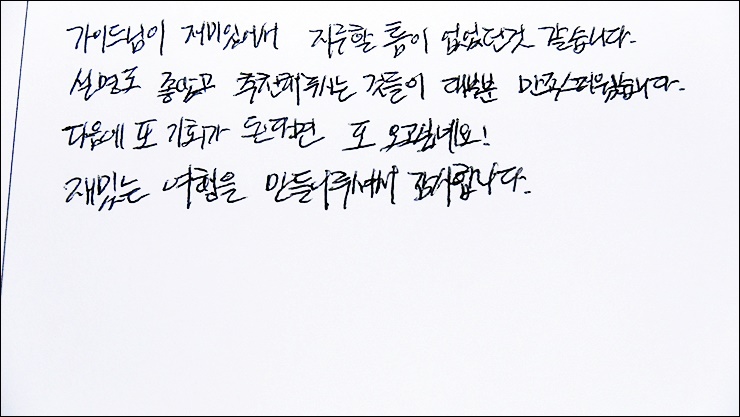 가이드님이 재미있어서 지루할 틈이 없었던것 같습니다.
설명도 좋았고 추천해주시는 것들이 대부분 만족스러웠습니다.
다음에 또 기회가 된다면 또 오고싶네요!
재밌는 여행을 만들어주셔서 감사합니다.